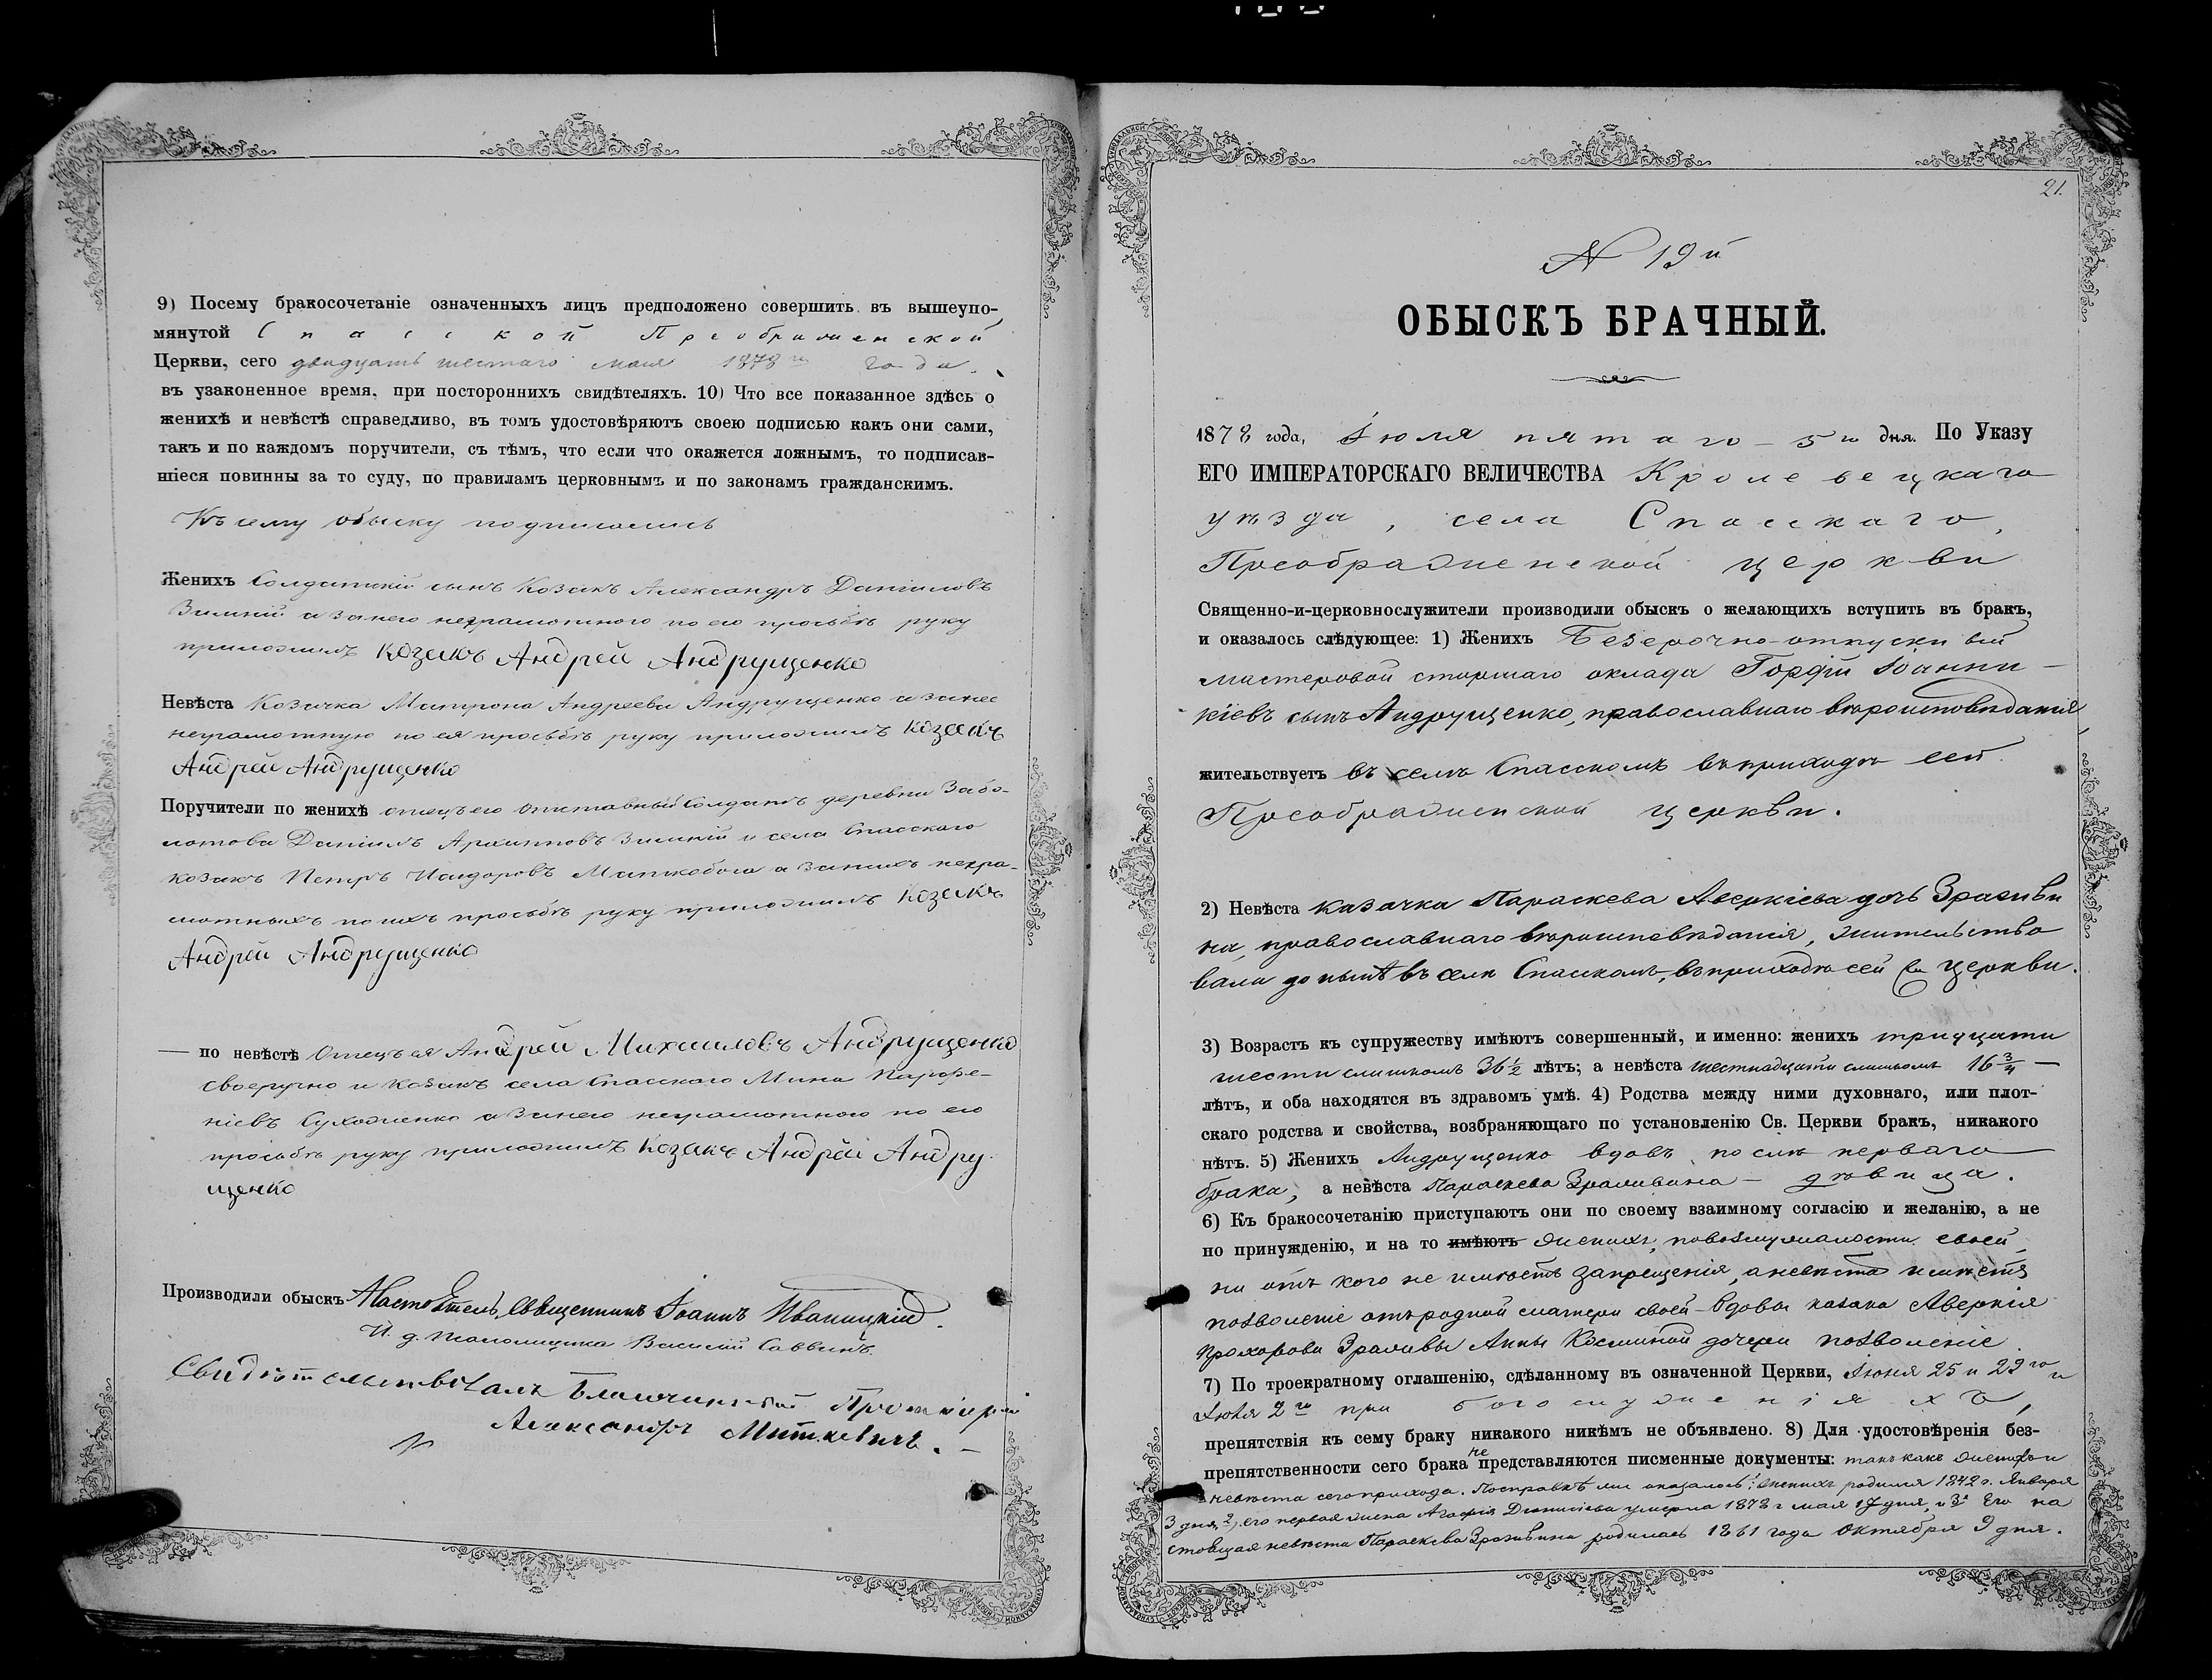 9) Посему бракосочетаніе означенныхъ лицъ предположено совершить въ вышеупо-
мянутой Спасской Преображенской
Церкви, сего двадцать шестаго мая 1878 го года.
въ узаконенное время, при постороннихъ свидѣтеляхъ. 10) Что все показанное здѣсь о
женихѣ и невѣстѣ справедливо, въ томъ удостовѣряютъ своею подписью какъ они сами,
такъ и по каждомъ поручители, съ тѣмъ, что если что окажется ложнымъ, то подписав-
шіеся повинны за то суду, по правиламъ церковнымъ и по законамъ гражданскимъ.
Къ сему обыску подписались
Женихъ Солдатскій сынъ Козакъ Александръ Даніиловъ
Зимній а за него неграмотного по его прозьбѣ руку
приложилъ козакъ Андрей Андрущенко
Невѣста Козачка Матрона Андреева Андрущенко а за нее
неграмотную по ея прозьбѣ руку приложилъ козакъ
Андрей Андрущенко
Поручители по женихѣ отецъ его отставный Солдатъ деревни Забо-
лотова Даніилъ Архиповъ Зимній и села Спасскаго
козакъ Петръ Исидоровъ а за нихъ негра-
мотныхъ по ихъ прозьбѣ руку приложилъ козакъ
Андрей Андрущенко
— по невѣстѣ Отецъ ея Андрей Михаиловъ Андрущенко
своеручно и козакъ села Спасскаго Мина Парфе-
ніевъ Суходченко а за него неграмотного по его
прозьбѣ руку приложилъ козакъ Андрей Андру
щенко
Производили обыскъ Настоятель, Священникъ Іоаннъ Иваницкій.
И. д. псаломщика Василій Саввинъ.
Свидѣтельствовалъ Благочинный Протоіерей
Александръ Миткевичъ. —
21.
N 19й
ОБЫСКЪ БРАЧНЫЙ.
1878 года, Іюля пятаго — 5го дня. По Указу
ЕГО ИМПЕРАТОРСКАГО ВЕЛИЧЕСТВА Кролевецкаго
уѣзда, села Спасскаго,
Преображенской церкви
Священно-и-церковнослужители производили обыскъ о желающихъ вступить въ бракъ,
и оказалось слѣдующее: 1) Женихъ Безсрочно-отпускный
мастеровой старшаго оклада Гордій Іоанни-
кіевъ сынъ Андрущенко, православнаго вѣроисповѣданія,
жительствуетъ въ селѣ Спасскомъ въ приходѣ сей
Преображенской церкви.
2) Невѣста казачка Параскева Аверкіева дочь Зраживи
на, православнаго вѣроисповѣданія, жительство
вала до нынѣ въ селѣ Спасскомъ, въ приходѣ сей Св. церкви.
3) Возрастъ къ супружеству имѣютъ совершенный, и именно: женихъ тридцати
шести слишкомъ 36 1/2 лѣтъ; а невѣста шестнадцати слишкомъ 16 3/4 —
лѣтъ, и оба находятся въ здравомъ умѣ. 4) Родства между ними духовнаго, или плот-
скаго родства и свойства, возбраняющаго по установленію Св. Церкви бракъ, никакого
нѣтъ. 5) Женихъ Андрущенко вдовъ послѣ перваго
брака, а невѣста Параскева Зраживина — дѣвица.
6) Къ бракосочетанію приступаютъ они по своему взаимному согласію и желанію, а не
по принужденію, и на то имѣютъ женихъ, по возмужалости своей,
ни отъ кого не имѣетъ запрещенія, а невѣста имѣетъ
позволеніе отъ родной матери своей — вдовы казака Аверкія
Прохорова Зраживы Анны Косминой дочери позволеніе
7) По троекратному оглашенію, сдѣланному въ означенной Церкви, Іюня 25 и 29го и
Іюля 2го при богослуженіяхъ,
препятствія къ сему браку никакого никѣмъ не объявлено. 8) Для удостовѣренія без-
препятственности сего брака не представляются писменные документы: такъ какъ женихъ и
невѣста сего прихода. По справкѣ же оказалось: 1, женихъ родился 1842 г. Января
3 дня, 2, его первая жена Агафія Діонисіева умерла 1878 г мая 17 дня, и 3, Его на
стоящая невѣста Параскева Зраживина родилась 1861 года Октября 9 дня.